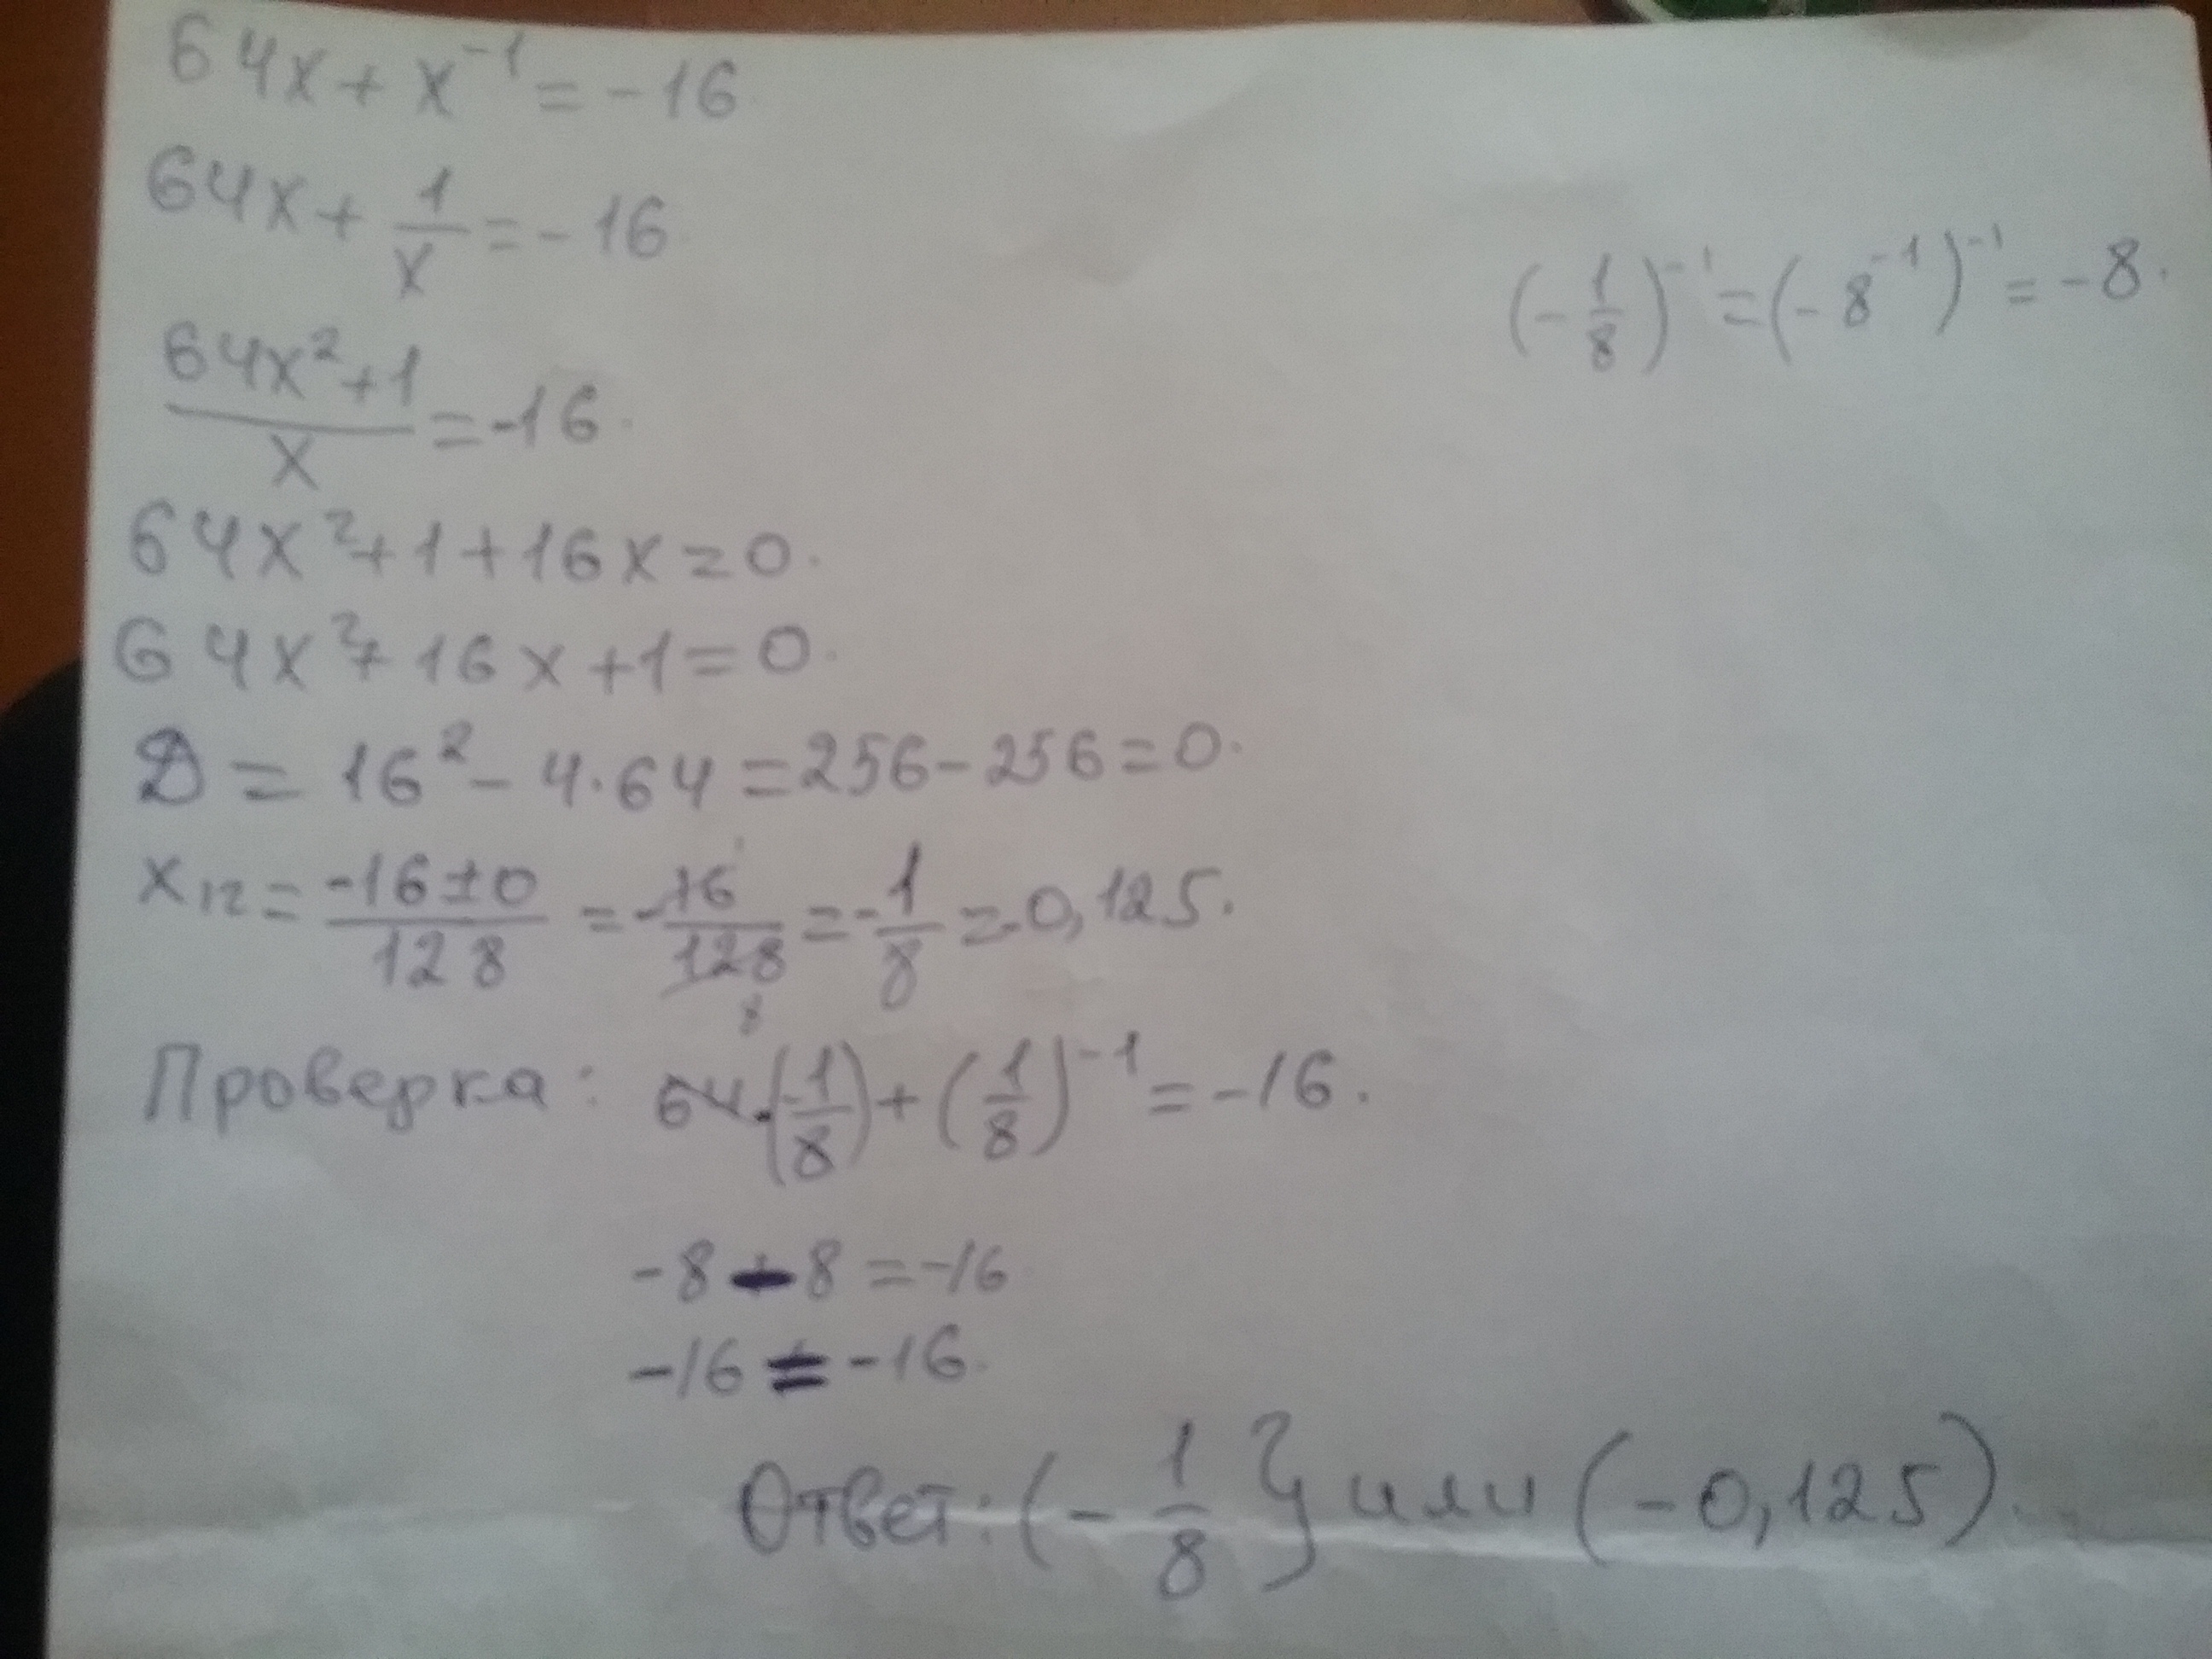 64x + x⁻¹ = -16
64x + 1/x = -16
(64x² + 1)/x = -16.
64x² + 1 + 16x = 0.
64x² + 16x + 1 = 0.
D = 16² - 4·64 = 256 - 256 = 0.
x₁₂ = (-16 ± 0)/128 = -16/128 = -1/8 = -0,125.
Проверка: 64·(-1/8) + (1/8)⁻¹ = -16.
-8 - 8 = -16
-16 = -16.
Ответ: (-1/8} или (-0,125).
(-1/8)⁻¹ = (-8⁻¹)⁻¹ = -8.